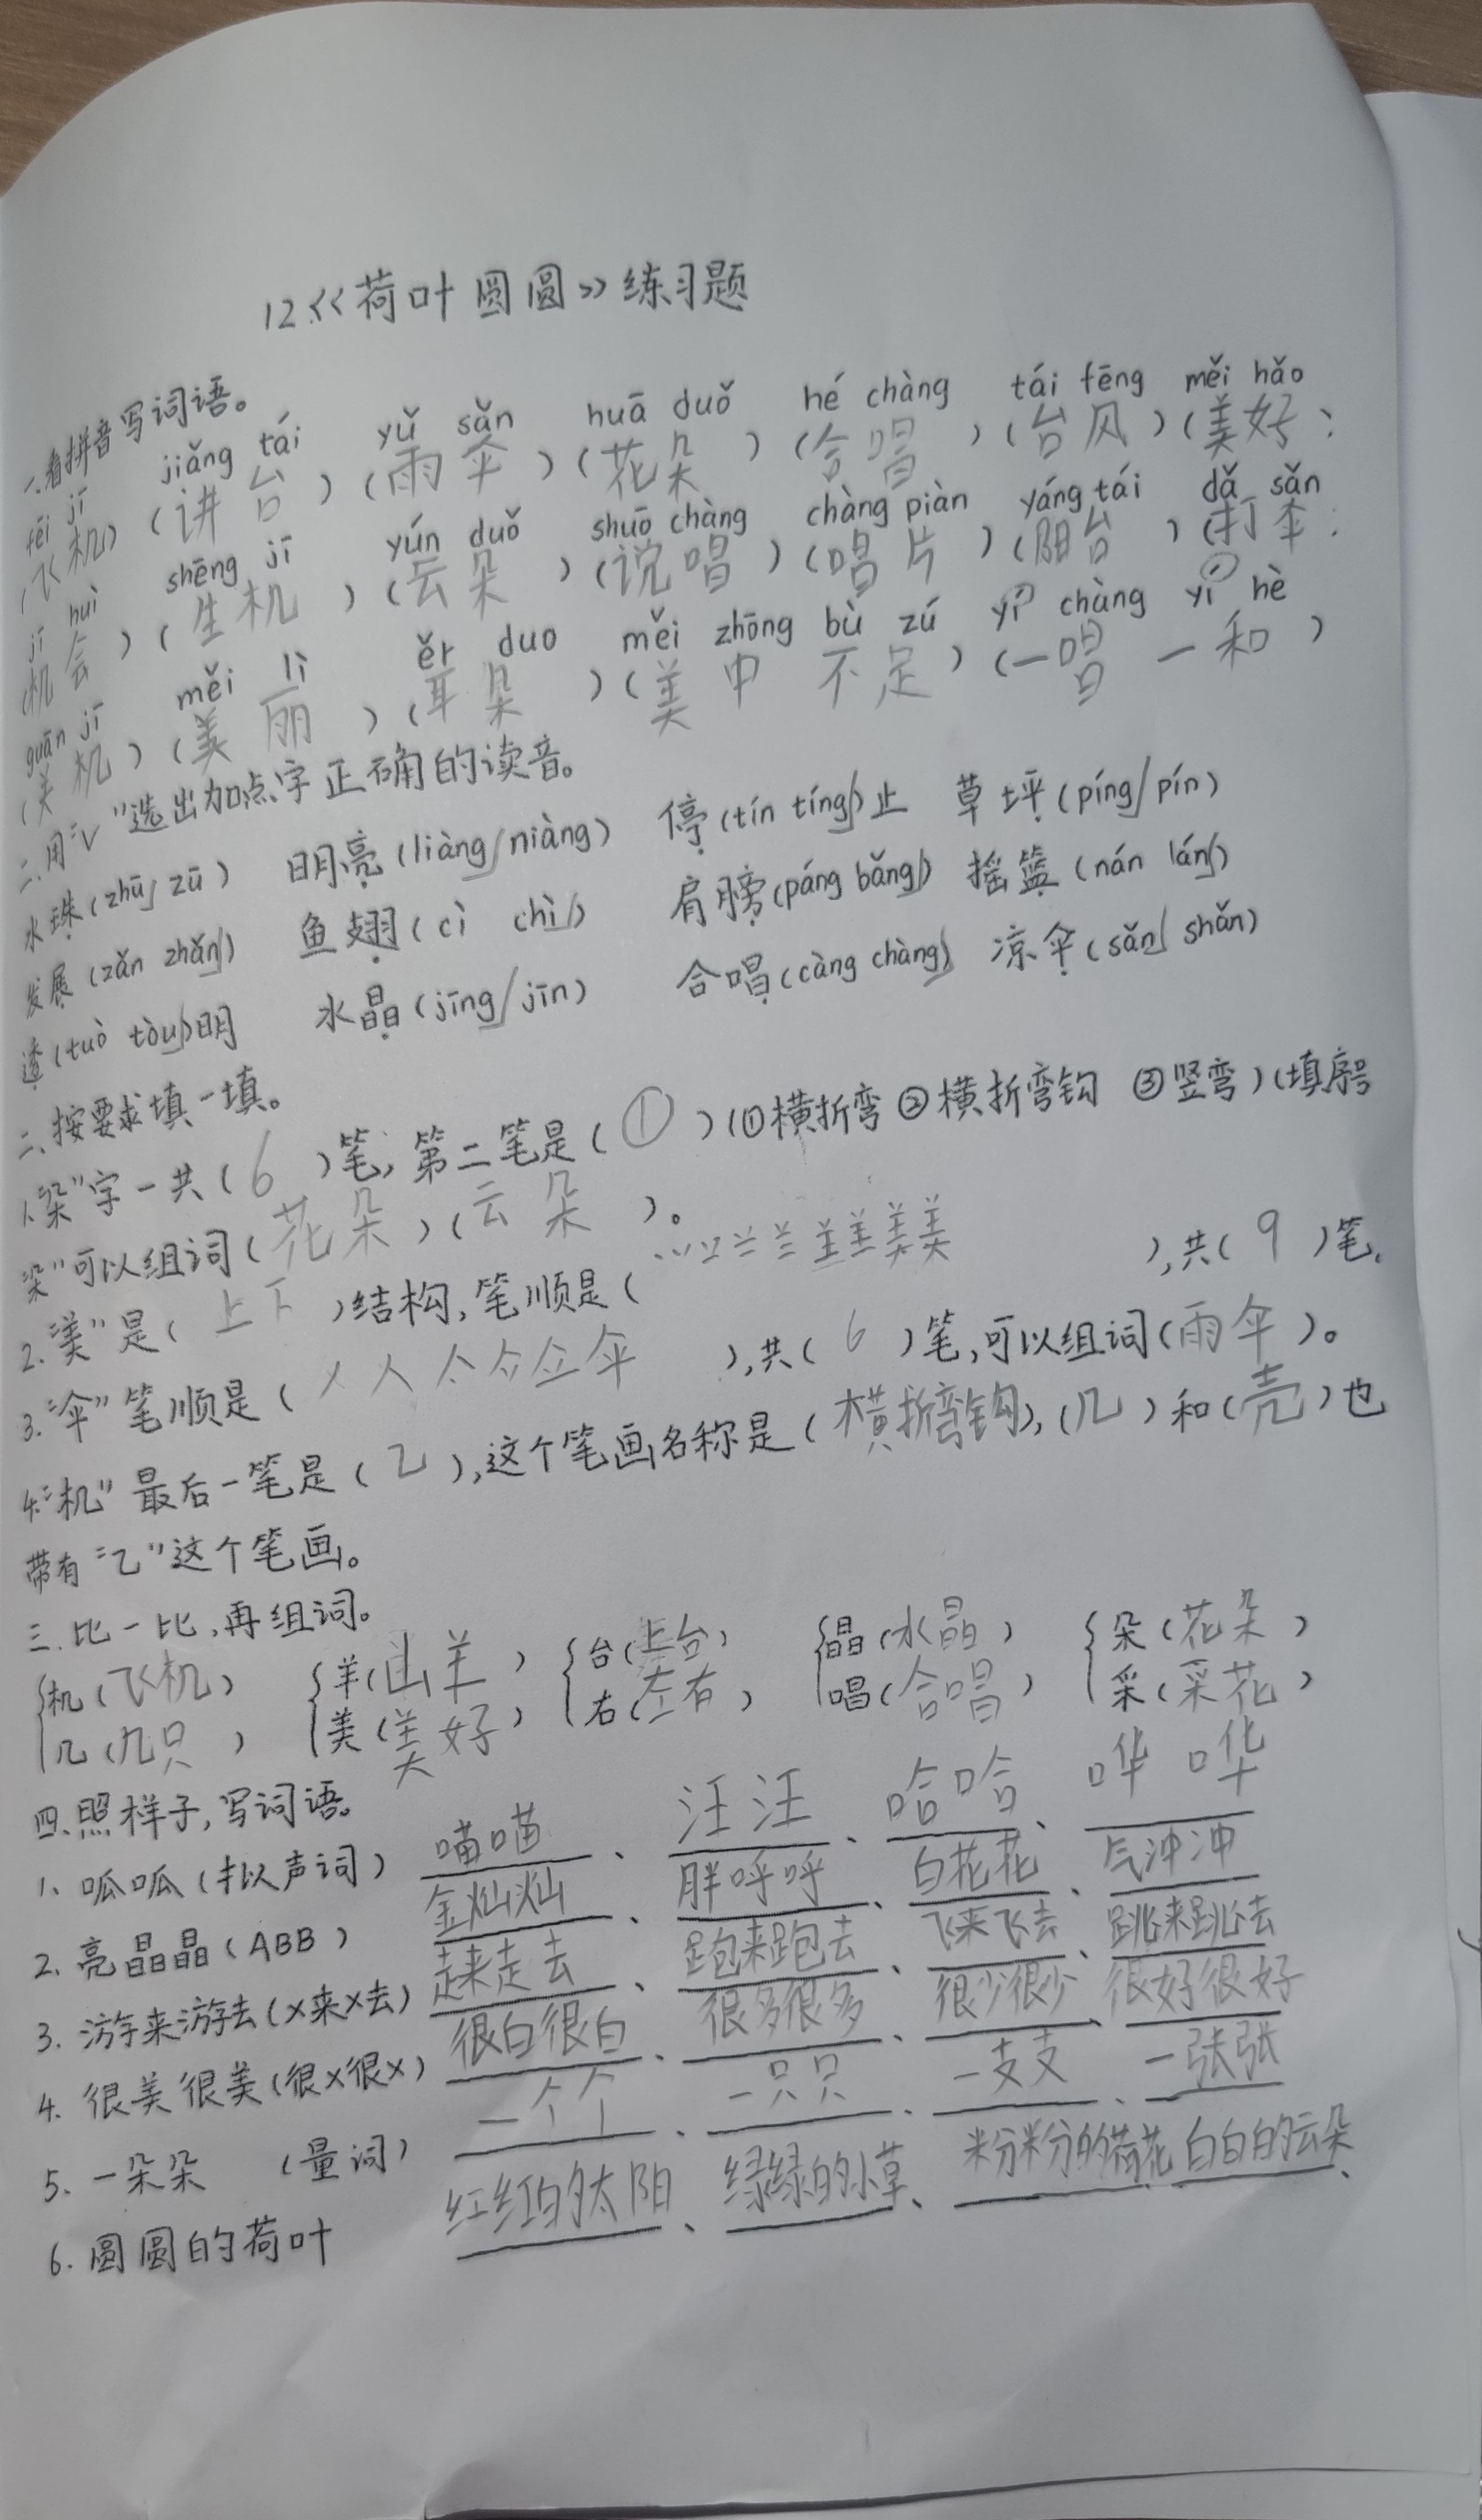 12.《荷叶圆圆》练习题
一、看拼音写词语。
fēi jī jiǎng tái yǔ sǎn huā duǒ hé chàng tái fēng měi hǎo
(飞机) (讲台) (雨伞) (花朵) (合唱) (台风) (美好)
jī huì shēng jī yún duǒ shuō chàng chàng piàn yáng tái dǎ sǎn
(机会) (生机) (云朵) (说唱) (唱片) (阳台) (打伞)
guān jī měi lì ěr duo měi zhōng bù zú yī chàng yī hè
(关机) (美丽) (耳朵) (美中不足) (一唱一和)
二.用“√”选出加点字正确的读音。
水珠(zhū√ zū) 明亮(liàng√niàng) 停(tín tíng√)止 草坪(píng√pín)
发展(zǎn zhǎn√) 鱼翅(cì chì√) 肩膀(páng bǎng√) 摇篮(nán lán√)
透(tuò tòu√)明 水晶(jīng√jīn) 合唱(càng chàng√) 凉伞(sǎn√ shǎn)
二、按要求填一填。
1.“朵”字一共(6)笔,第二笔是(①)(①横折弯 ②横折弯钩 ③竖弯)(填序号
“朵”可以组词(花朵)(云朵)。
2.“美”是(上下)结构,笔顺是( ),共(9)笔.
3.“伞”笔顺是( ),共(6)笔,可以组词(雨伞)。
4.“机”最后一笔是(乙),这个笔画名称是(横折弯钩),(几)和(壳)也
带有“乙”这个笔画。
三.比一比,再组词。
机(飞机) 羊(山羊) 台(上台) 晶(水晶) 朵(花朵)
几(几只) 美(美好) 右(左右) 唱(合唱) 采(采花)
四.照样子,写词语。
1、呱呱(拟声词) 喵喵、汪汪、哈哈、哗哗
2.亮晶晶(ABB) 金灿灿、胖呼呼、白花花、气冲冲
3.游来游去(×来×去) 走来走去、跑来跑去、飞来飞去、跳来跳去
4.很美很美(很×很×) 很白很白、很多很多、很少很少、很好很好
5.一朵朵 (量词) 一个个、一只只、一支支、一张张
6.圆圆的荷叶 红红的太阳、绿绿的小草、粉粉的荷花 白白的云朵、